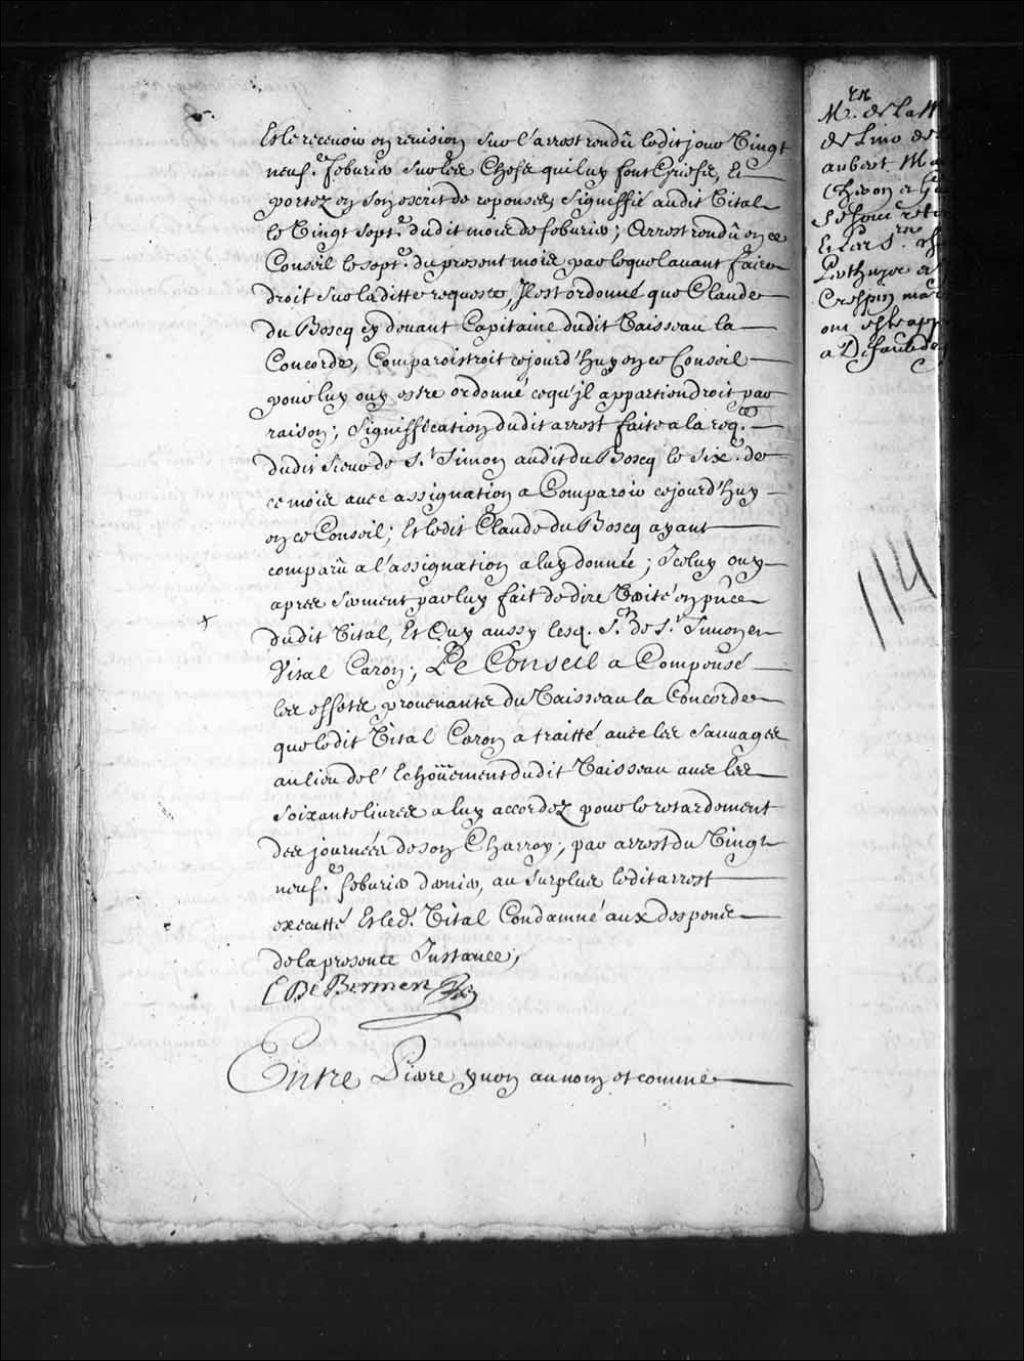 Et le recevoir en revision sur l'arrest rendû ledit jour Vingt
neuf.e feburier sur les Chefs qui luy font Griefs, Et
portez en son escrit de reponses, signiffié audit Vital
le Vingt sept.e dudit mois de feburier; Arrest rendû en ce
Conseil le sept.e du present mois par lequel avant faire
droit sur la ditte requeste, Il est ordonné que Claude
du Boscq cy devant Capitaine dudit Vaisseau la
Concorde, Comparoistroit cejourd'huy en ce Conseil
pour luy ouy estre ordonné ce qu'jl appartiendroit par
raison; Signiffication dudit arrest faite a la req.te
dudit Sieur de S.t Simon audit du Boscq le six.e de
ce mois avec assignation a Comparoir cejourd'huy
en ce Conseil; Et ledit Claude du Boscq ayant
comparû a l'assignation a luy donnée; Iceluy ouy
apres serment par luy fait de dire Verité en pnce
dudit Vital, Et Ouy aussy lesq. S.r de S.t Simon et
Vital Caron; Le Conseil a Compensé
les effets provenants du Vaisseau la Concorde
que ledit Vital Caron a traitté avec les Sauvages
au lieu de l'Echoüement dudit Vaisseau avec les
soixante livres a luy accordez pour le retardement
des journées de son Charroy, par arrest du Vingt
neuf.e feburier dernier, au surplus ledit arrest
executté Et led. Vital Condamné aux despens
de la presente Instance;
C De Bermen
Entre Pierre yvon au nom et comme
M.rs de la M
de Lino de
aubert Ma
Et les S.rs
Crespin ma
114